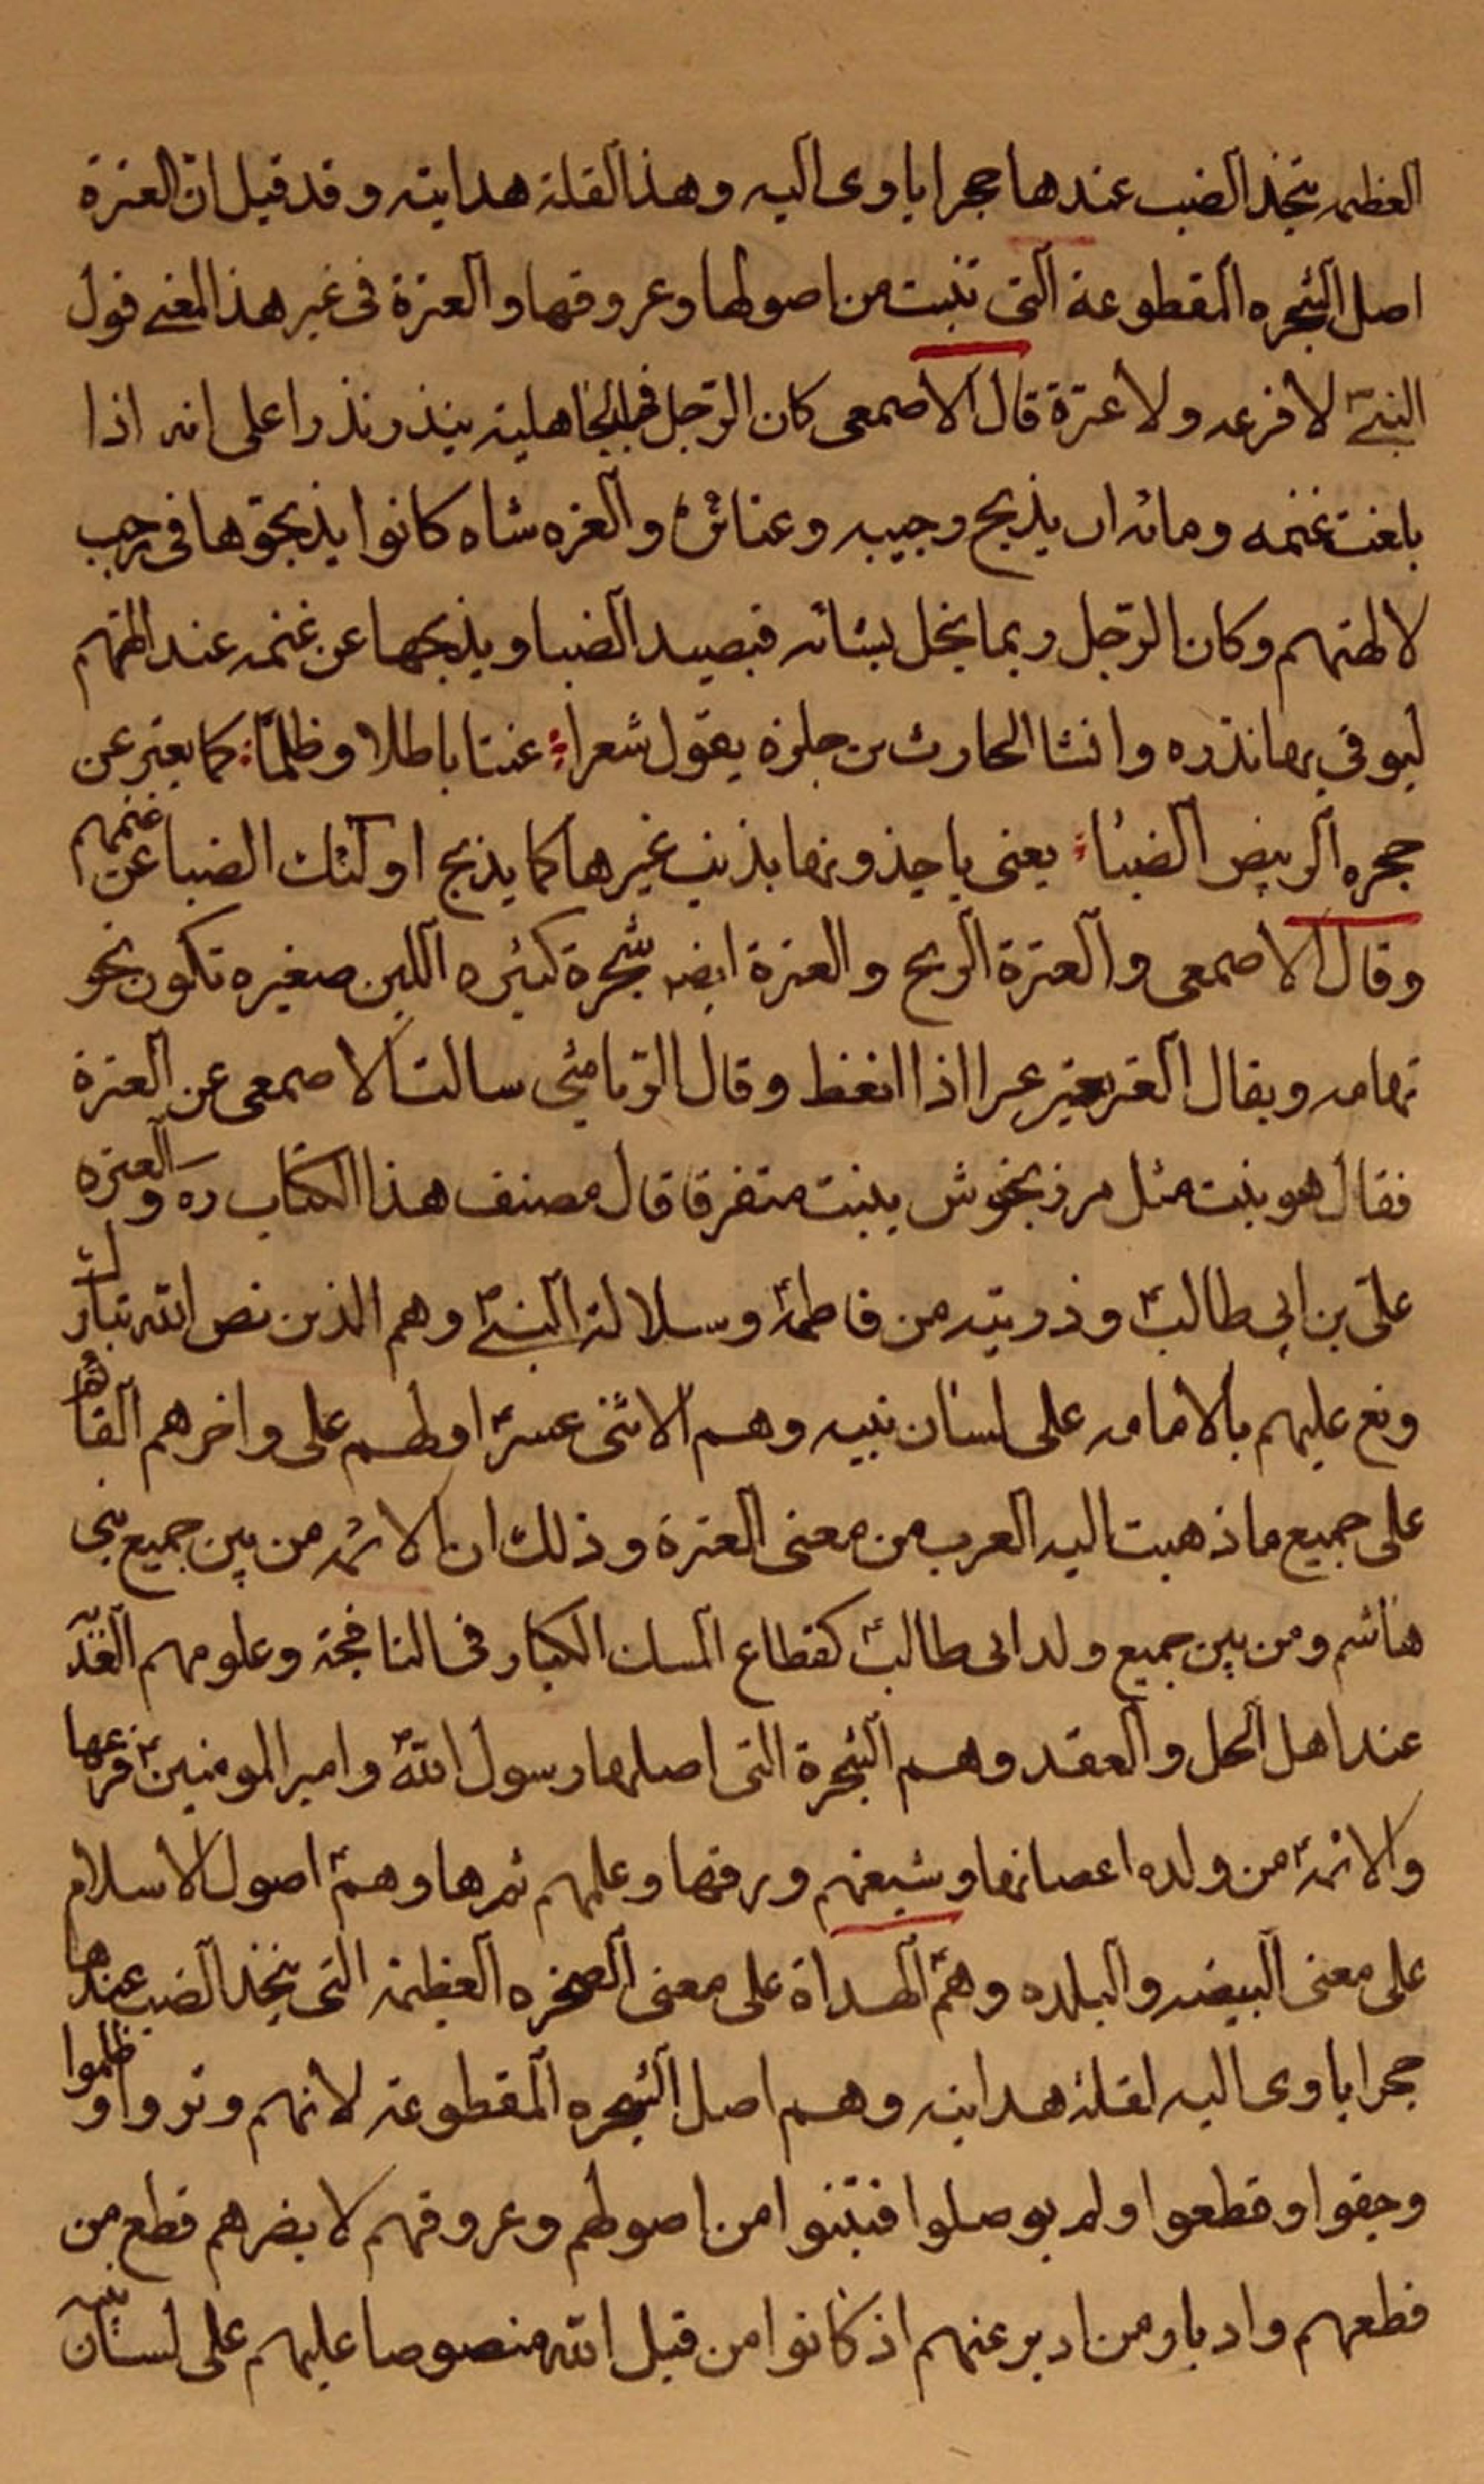 العظيمه يتخذ الضب عندها حجرا ياوى اليه وهذا لقلة هدايته وقد قيل ان العترة
اصل الشجره المقطوعة التى تنبت من اصولها وعروقها والعترة فى غير هذا المعنى قول
النبىؐ لا فرعه ولا عترة قال الاصمعى كان الرجل فى الجاهلية ينذر نذرا على انه اذا
بلغت غنمه ومائه ان يذبح رجبيه وعتائر والعتره شاه كانوا يذبحونها فى رجب
لالهتهم وكان الرّجل ربما بخل بشاته فيصيد الضبا ويذبحها عن غنمه عند الهتهم
ليوفي بها نذره وانشا الحارث بن حلزه يقول شعرا عنتا باطلا وظلمًا كما يعتر عن
حجره الربيض الضباء يعنى ياخذونها بذنب غيرها كما يذبح اولئك الضبا عن غنمهم
وقال الاصمعى والعترة الريح والعترة ايضه شجرة كثيره اللبن صغيره تكون نحو
تهامه ويقال العتر يعتر عترا اذا انغظ وقال الرّياشي سالت الاصمعى عن العترة
فقال هو نبت مثل مرزنجوش ينبت متفرقا قال مصنف هذا الكتاب ره والعتره
على بن ابي طالبؑ وذريته من فاطمهؑ وسلالة النبىؐ وهم الذين نص الله تبارك
وتع عليهم بالامامه على لسان نبيه وهم الاثنى عشرؑ اولهم على واخرهم القاهم
على جميع ما ذهبت اليه العرب من معنى العترة وذلك ان الائمهؑ من بين جميع بنى
هاشم ومن بين جميع ولد ابى طالبؑ كقطاع المسك الكبار فى النافجة وعلومهم العذبه
عند اهل الحل والعقد وهم الشجرة التى اصلها رسول اللهؐ وامير المومنينؑ فرعها
والائمهؑ من ولده اعصانها وشيعتهم ورقها وعلمهم ثمرها وهمؑ اصول الاسلام
على معنى البيضه والبلده وهمؑ الهداة على معنى الصخره العظيمة التى يتخذ الضب عندها
حجرا ياوى اليه لقلة هدايته وهم اصل الشجره المقطوعة لانهم وتروا وظلموا
وجفوا وقطعوا ولم يوصلوا فنبتوا من اصولهم وعروقهم لا يضرهم قطع من
قطعهم وادبار من ادبر عنهم اذ كانوا من قبل الله منصوصا عليهم على لسان نبيه